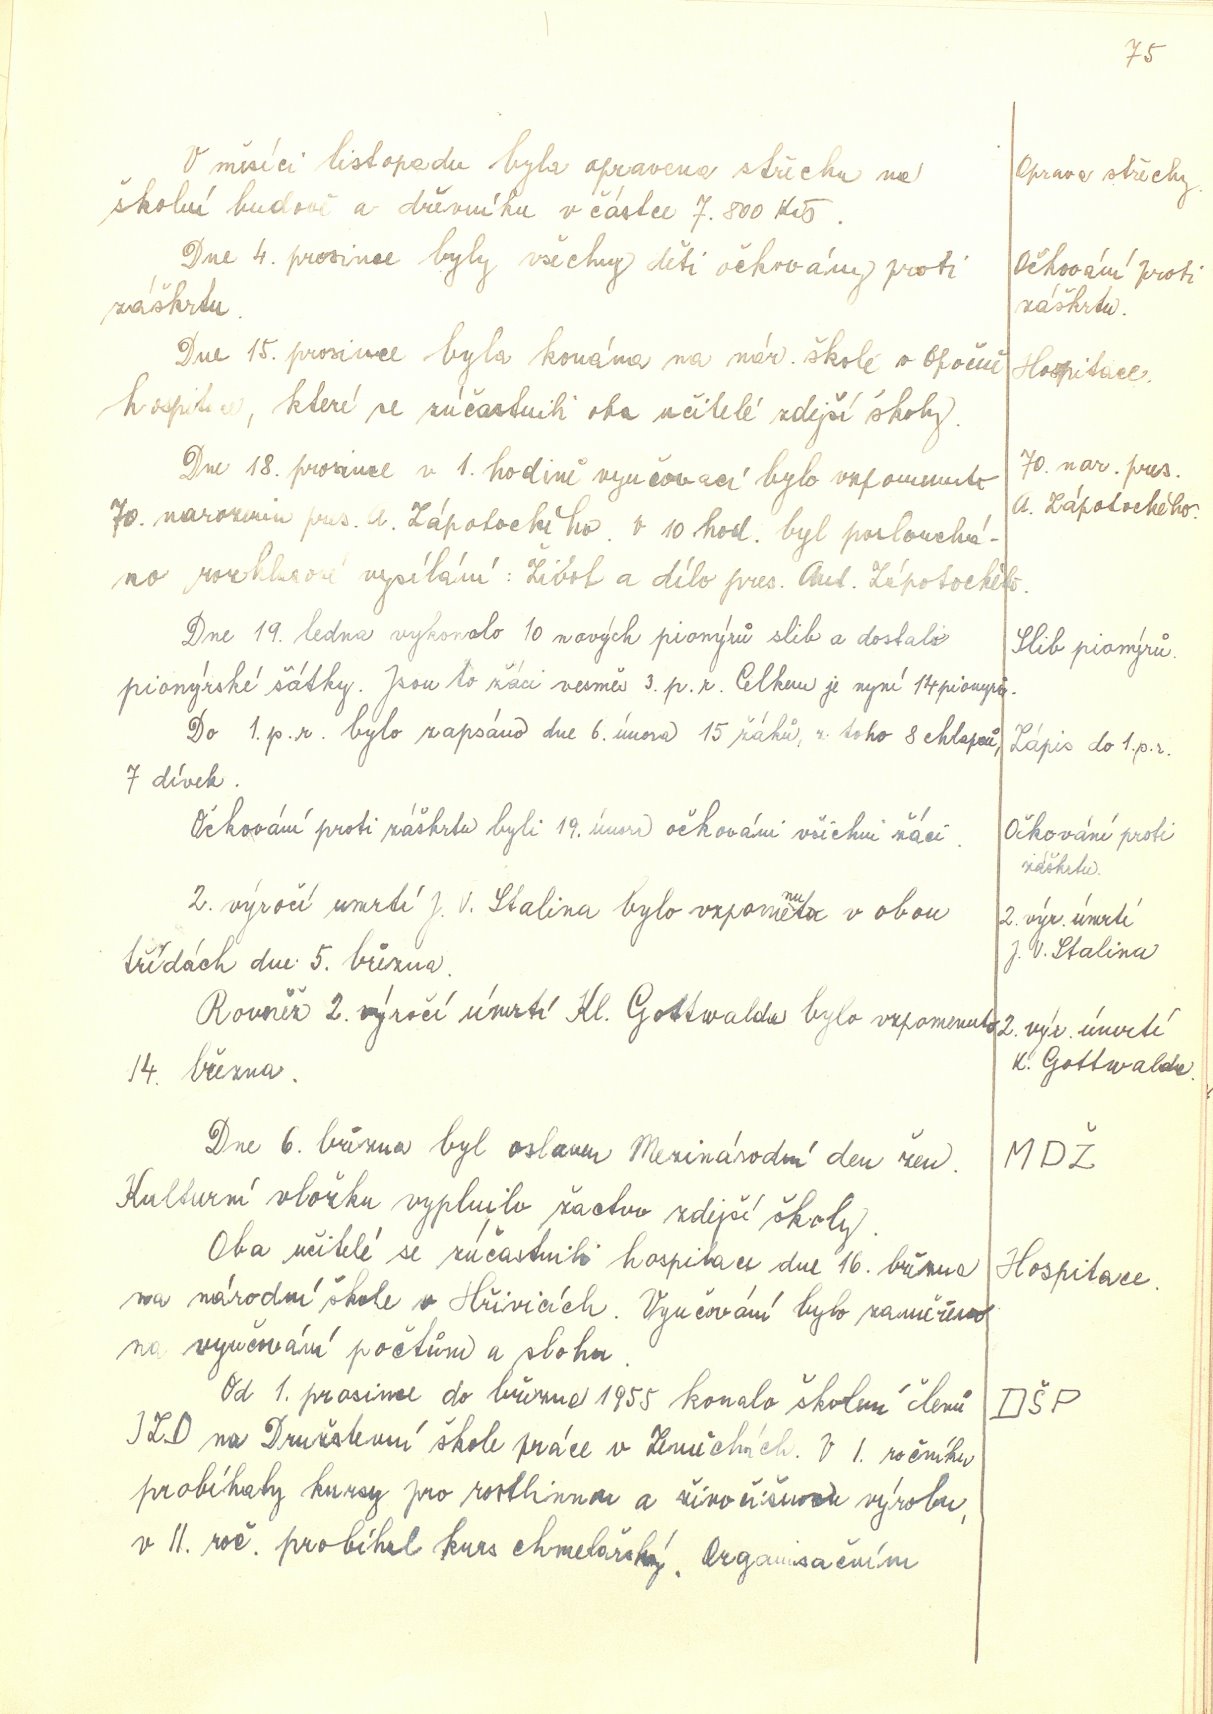 75
V měsíci listopadu byla opravena střecha na
Oprava střechy.
školní budově a dřevníku v částce 7.800 Kčs.
Dne 4. prosince byly všechny děti očkovány proti
záškrtu.
Očkování proti
záškrtu.
Dne 15. prosince byla konána na nár. škole v Opočně
Hospitace.
hospitace, které se zúčastnili oba učitelé zdejší školy.
Dne 18. prosince v 1. hodině vyučovací bylo vzpomenuto
70. nar. pres.
A. Zápotockého.
70. narozenin pres. A. Zápotockého. V 10 hod. byl poslouchá-
no rozhlasové vysílání: Život a dílo pres. Ant. Zápotockého.
Dne 19. ledna vykonalo 10 nových pionýrů slib a dostali
Slib pionýrů.
pionýrské šátky. Jsou to žáci vesměs 3. p. r. Celkem je nyní 14 pionýrů.
Do 1. p. r. bylo zapsáno dne 6. února 15 žáků, z toho 8 chlapců,
Zápis do 1. p. r.
7 dívek.
Očkování proti záškrtu byli 19. února očkováni všichni žáci.
Očkování proti
záškrtu.
2. výročí umrtí J. V. Stalina bylo vzpomenuto v obou
2. výr. úmrtí
J. V. Stalina
třídách dne 5. března.
Rovněž 2. výročí úmrtí Kl. Gottwalda bylo vzpomenuto
2. výr. úmrtí
K. Gottwalda.
14. března.
Dne 6. března byl oslaven Mezinárodní den žen.
MDŽ
Kulturní vložku vyplnilo žactvo zdejší školy.
Oba učitelé se zúčastnili hospitace dne 16. března
Hospitace.
na národní škole v Hřivicích. Vyučování bylo zaměřeno
na vyučování počtům a slohu.
Od 1. prosince do března 1955 konalo školení členů
DŠP
JZD na Družstevní škole práce v Zeměchách. V I. ročníku
probíhaly kursy pro rostlinnou a živočišnou výrobu,
v II. roč. probíhal kurs chmelařský. Organisačním